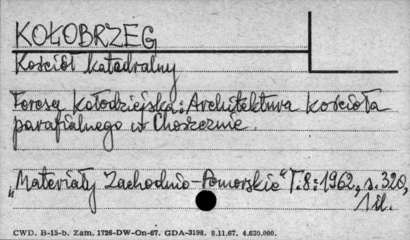 KOŁOBRZEG
Kościół Katedralny
Teresa Kołodziejska: Architektura kościoła
parafialnego w Choszcznie.
„Materiały Zachodnio-Pomorskie" T.8: 1962, s. 320,
1 il.
CWD. B-15-b. Zam. 1726-DW-On-67. GDA-3198. 8.11.67. 4.630.000.